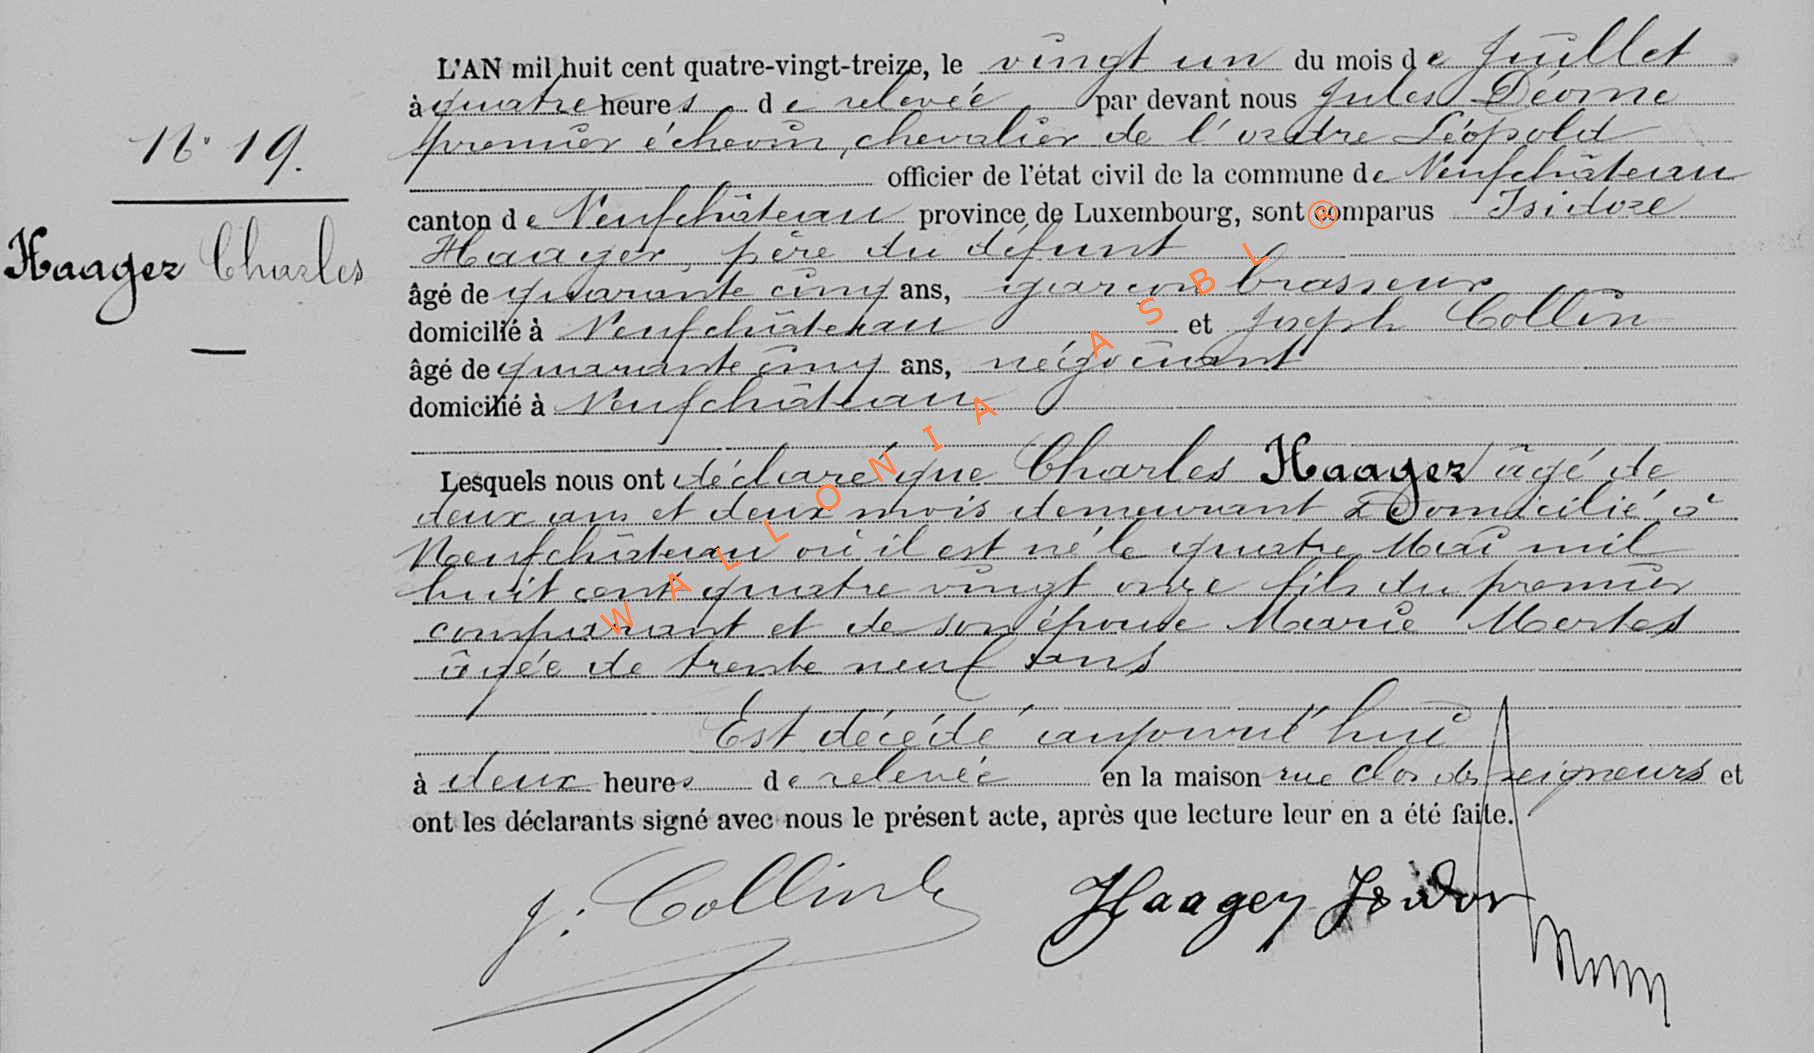 L'AN mil huit cent quatre-vingt-treize, le vingt un du mois de Juillet
à quatre heures de relevée par devant nous Jules Déome
premier échevin, chevalier de l'ordre Léopold
officier de l'état civil de la commune de Neufchâteau
canton de Neufchâteau province de Luxembourg, sont comparus Isidore
Haager, père du défunt
âgé de quarante cinq ans, garçon brasseur
domicilié à Neufchâteau et Joseph Collin
âgé de quarante cinq ans, négociant
domicilié à Neufchâteau
N° 19.
Haager Charles
Lesquels nous ont déclaré que Charles Haager âgé de
deux ans et deux mois demeurant & Domicilié à
Neufchâteau où il est né le quatre Mai mil
huit cent quatre vingt onze fils du premier
comparant et de son épouse Marie Mertes
âgée de trente neuf ans
Est décédé aujourd'hui
à deux heures de relevée en la maison rue clos des seigneurs et
ont les déclarants signé avec nous le présent acte, après que lecture leur en a été faite.
J. Collin Haager Isidor
WALLONIA ASBL ®